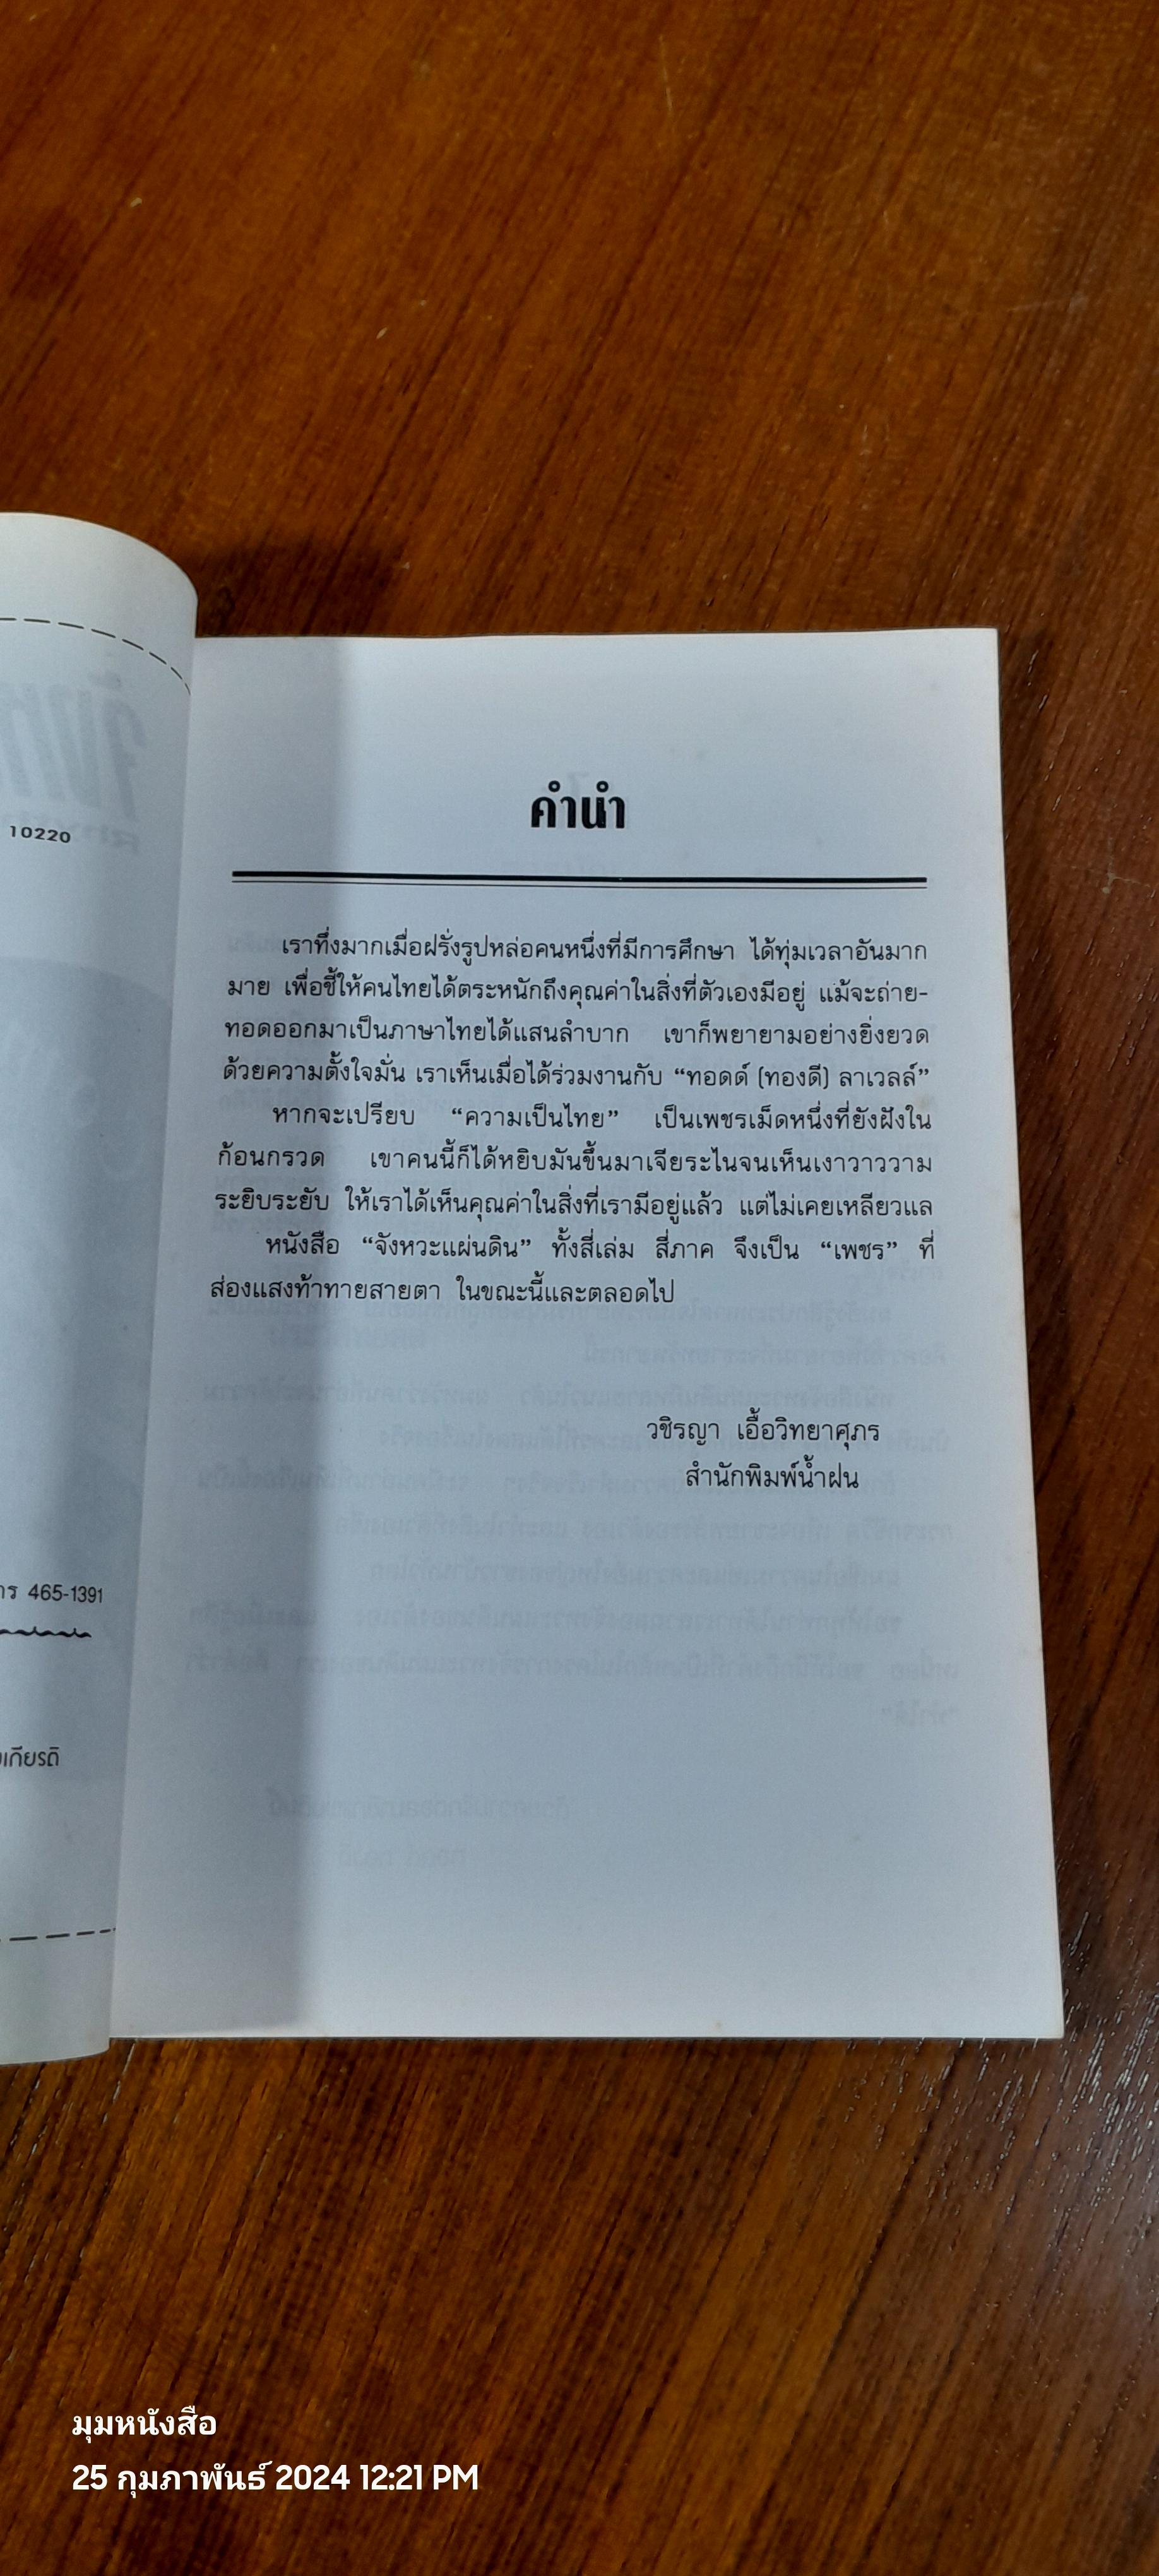 10220
465-1391
คำนำ
เราทึ่งมากเมื่อฝรั่งรูปหล่อคนหนึ่งที่มีการศึกษา ได้ทุ่มเวลาอันมาก
มาย เพื่อชี้ให้คนไทยได้ตระหนักถึงคุณค่าในสิ่งที่ตัวเองมีอยู่ แม้จะถ่าย-
ทอดออกมาเป็นภาษาไทยได้แสนลำบาก เขาก็พยายามอย่างยิ่งยวด
ด้วยความตั้งใจมั่น เราเห็นเมื่อได้ร่วมงานกับ “ทอดด์ (ทองดี) ลาเวลล์”
หากจะเปรียบ “ความเป็นไทย” เป็นเพชรเม็ดหนึ่งที่ยังฝังใน
ก้อนกรวด เขาคนนี้ก็ได้หยิบมันขึ้นมาเจียระไนจนเห็นเงาวาววาม
ระยิบระยับ ให้เราได้เห็นคุณค่าในสิ่งที่เรามีอยู่แล้ว แต่ไม่เคยเหลียวแล
หนังสือ “จังหวะแผ่นดิน” ทั้งสี่เล่ม สี่ภาค จึงเป็น “เพชร” ที่
ส่องแสงท้าทายสายตา ในขณะนี้และตลอดไป
วชิรญา เอื้อวิทยาศุภร
สำนักพิมพ์น้ำฝน
มุมหนังสือ
25 กุมภาพันธ์ 2024 12:21 PM